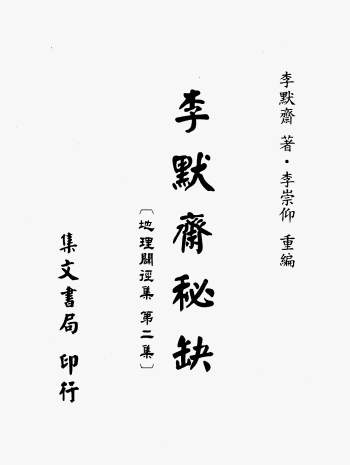 李默齋 著・李崇仰 重編
李默齋秘缺
〔地理闢徑集 第二集〕
集文書局 印行